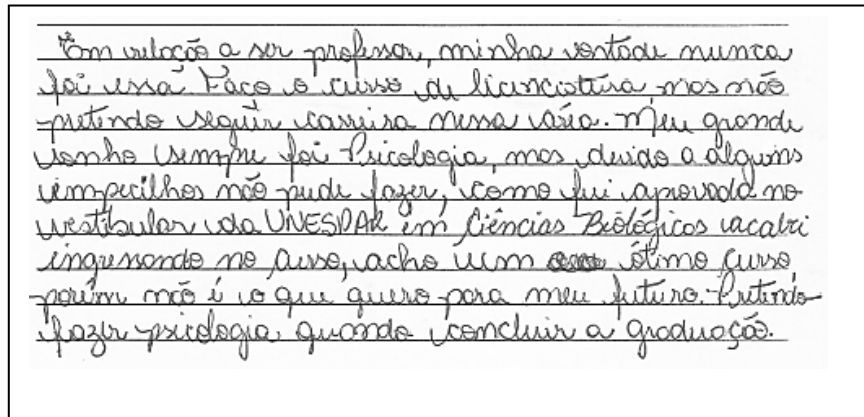 Em relação a ser professor, minha vontade nunca
foi essa. Faço o curso de licenciatura, mas não
pretendo seguir carreira nessa área. Meu grande
sonho sempre foi Psicologia, mas devido a alguns
empecilhos não pude fazer, como fui aprovada no
vestibular da UNESPAR em Ciências Biológicas acabei
ingressando no curso, acho um ótimo curso,
porém não é o que quero para meu futuro. Pretendo
fazer psicologia quando concluir a graduação.